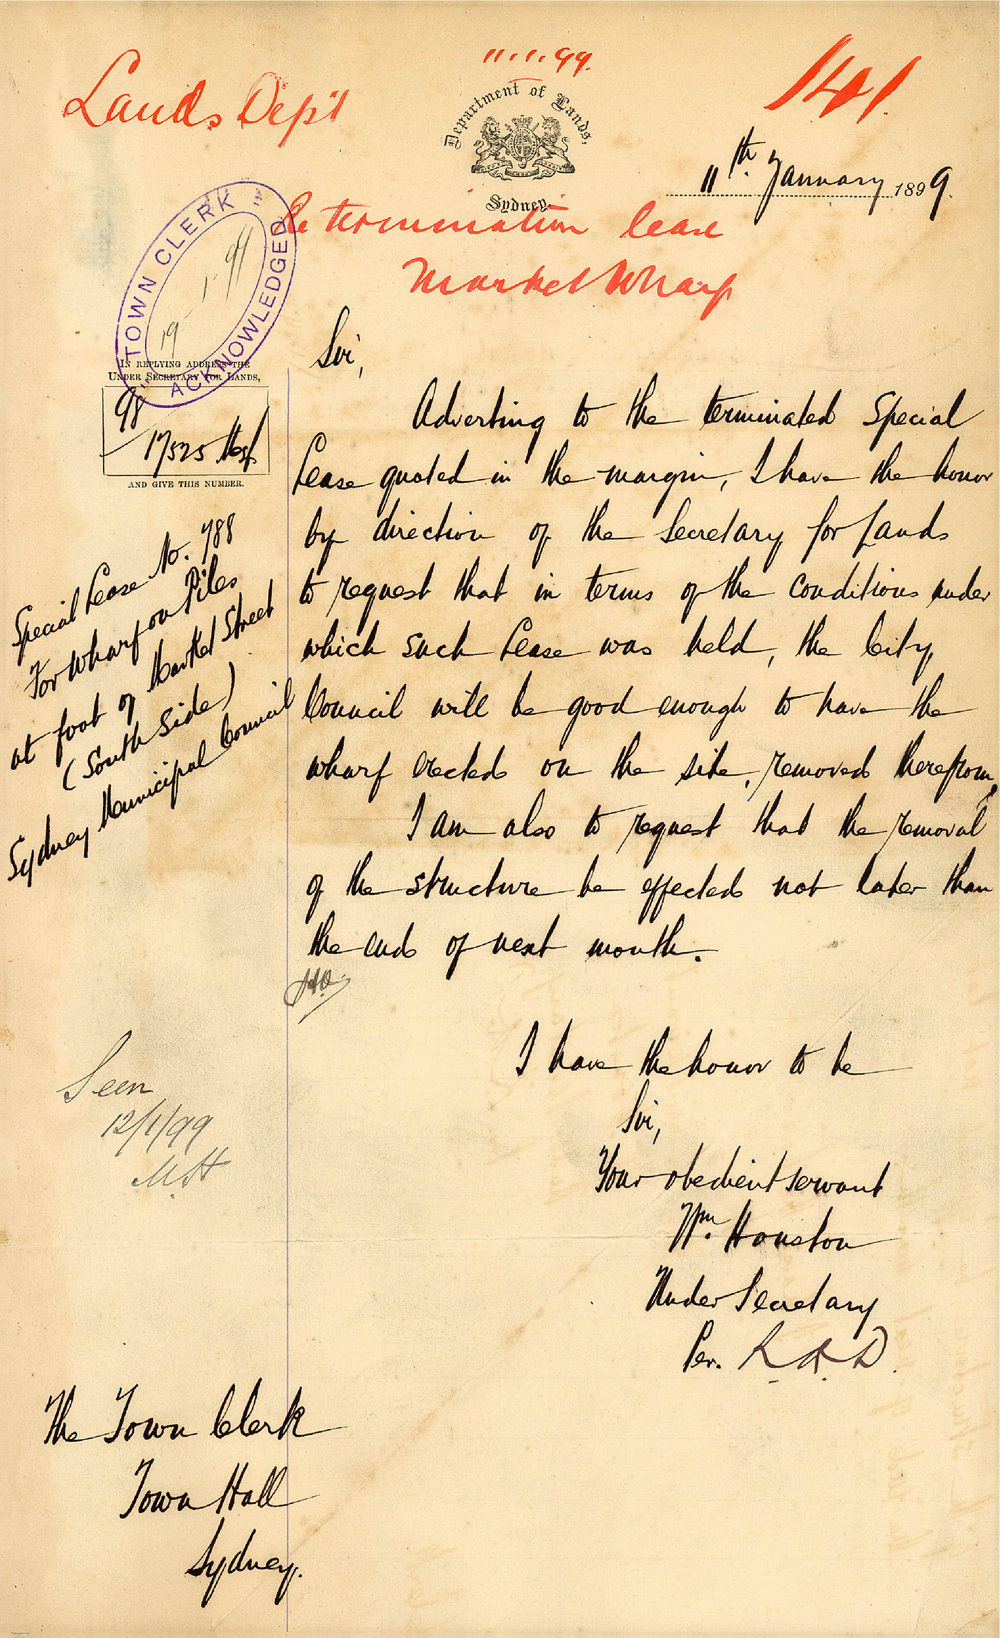 11.1.99.
Lands Dep't
141.
Department of Lands,
Sydney.
11th January 1899.
re termination lease
Market Wharf
TOWN CLERK
19 1. 99
ACKNOWLEDGED
IN REPLYING ADDRESS THE
UNDER SECRETARY FOR LANDS,
98
17525
AND GIVE THIS NUMBER.
Special Lease No. 788
For Wharf on Piles
at foot of Market Street
(South Side)
Sydney Municipal Council
Sir,
Adverting to the terminated Special
Lease quoted in the margin, I have the honor
by direction of the Secretary for Lands
to request that in terms of the conditions under
which such Lease was held, the City
Council will be good enough to have the
wharf erected on the site, removed therefrom.
I am also to request that the removal
of the structure be effected not later than
the end of next month.
I have the honor to be
Sir,
Your obedient servant
Wm. Houston
Under Secretary
Per.
Seen
12/1/99
The Town Clerk
Town Hall
Sydney.